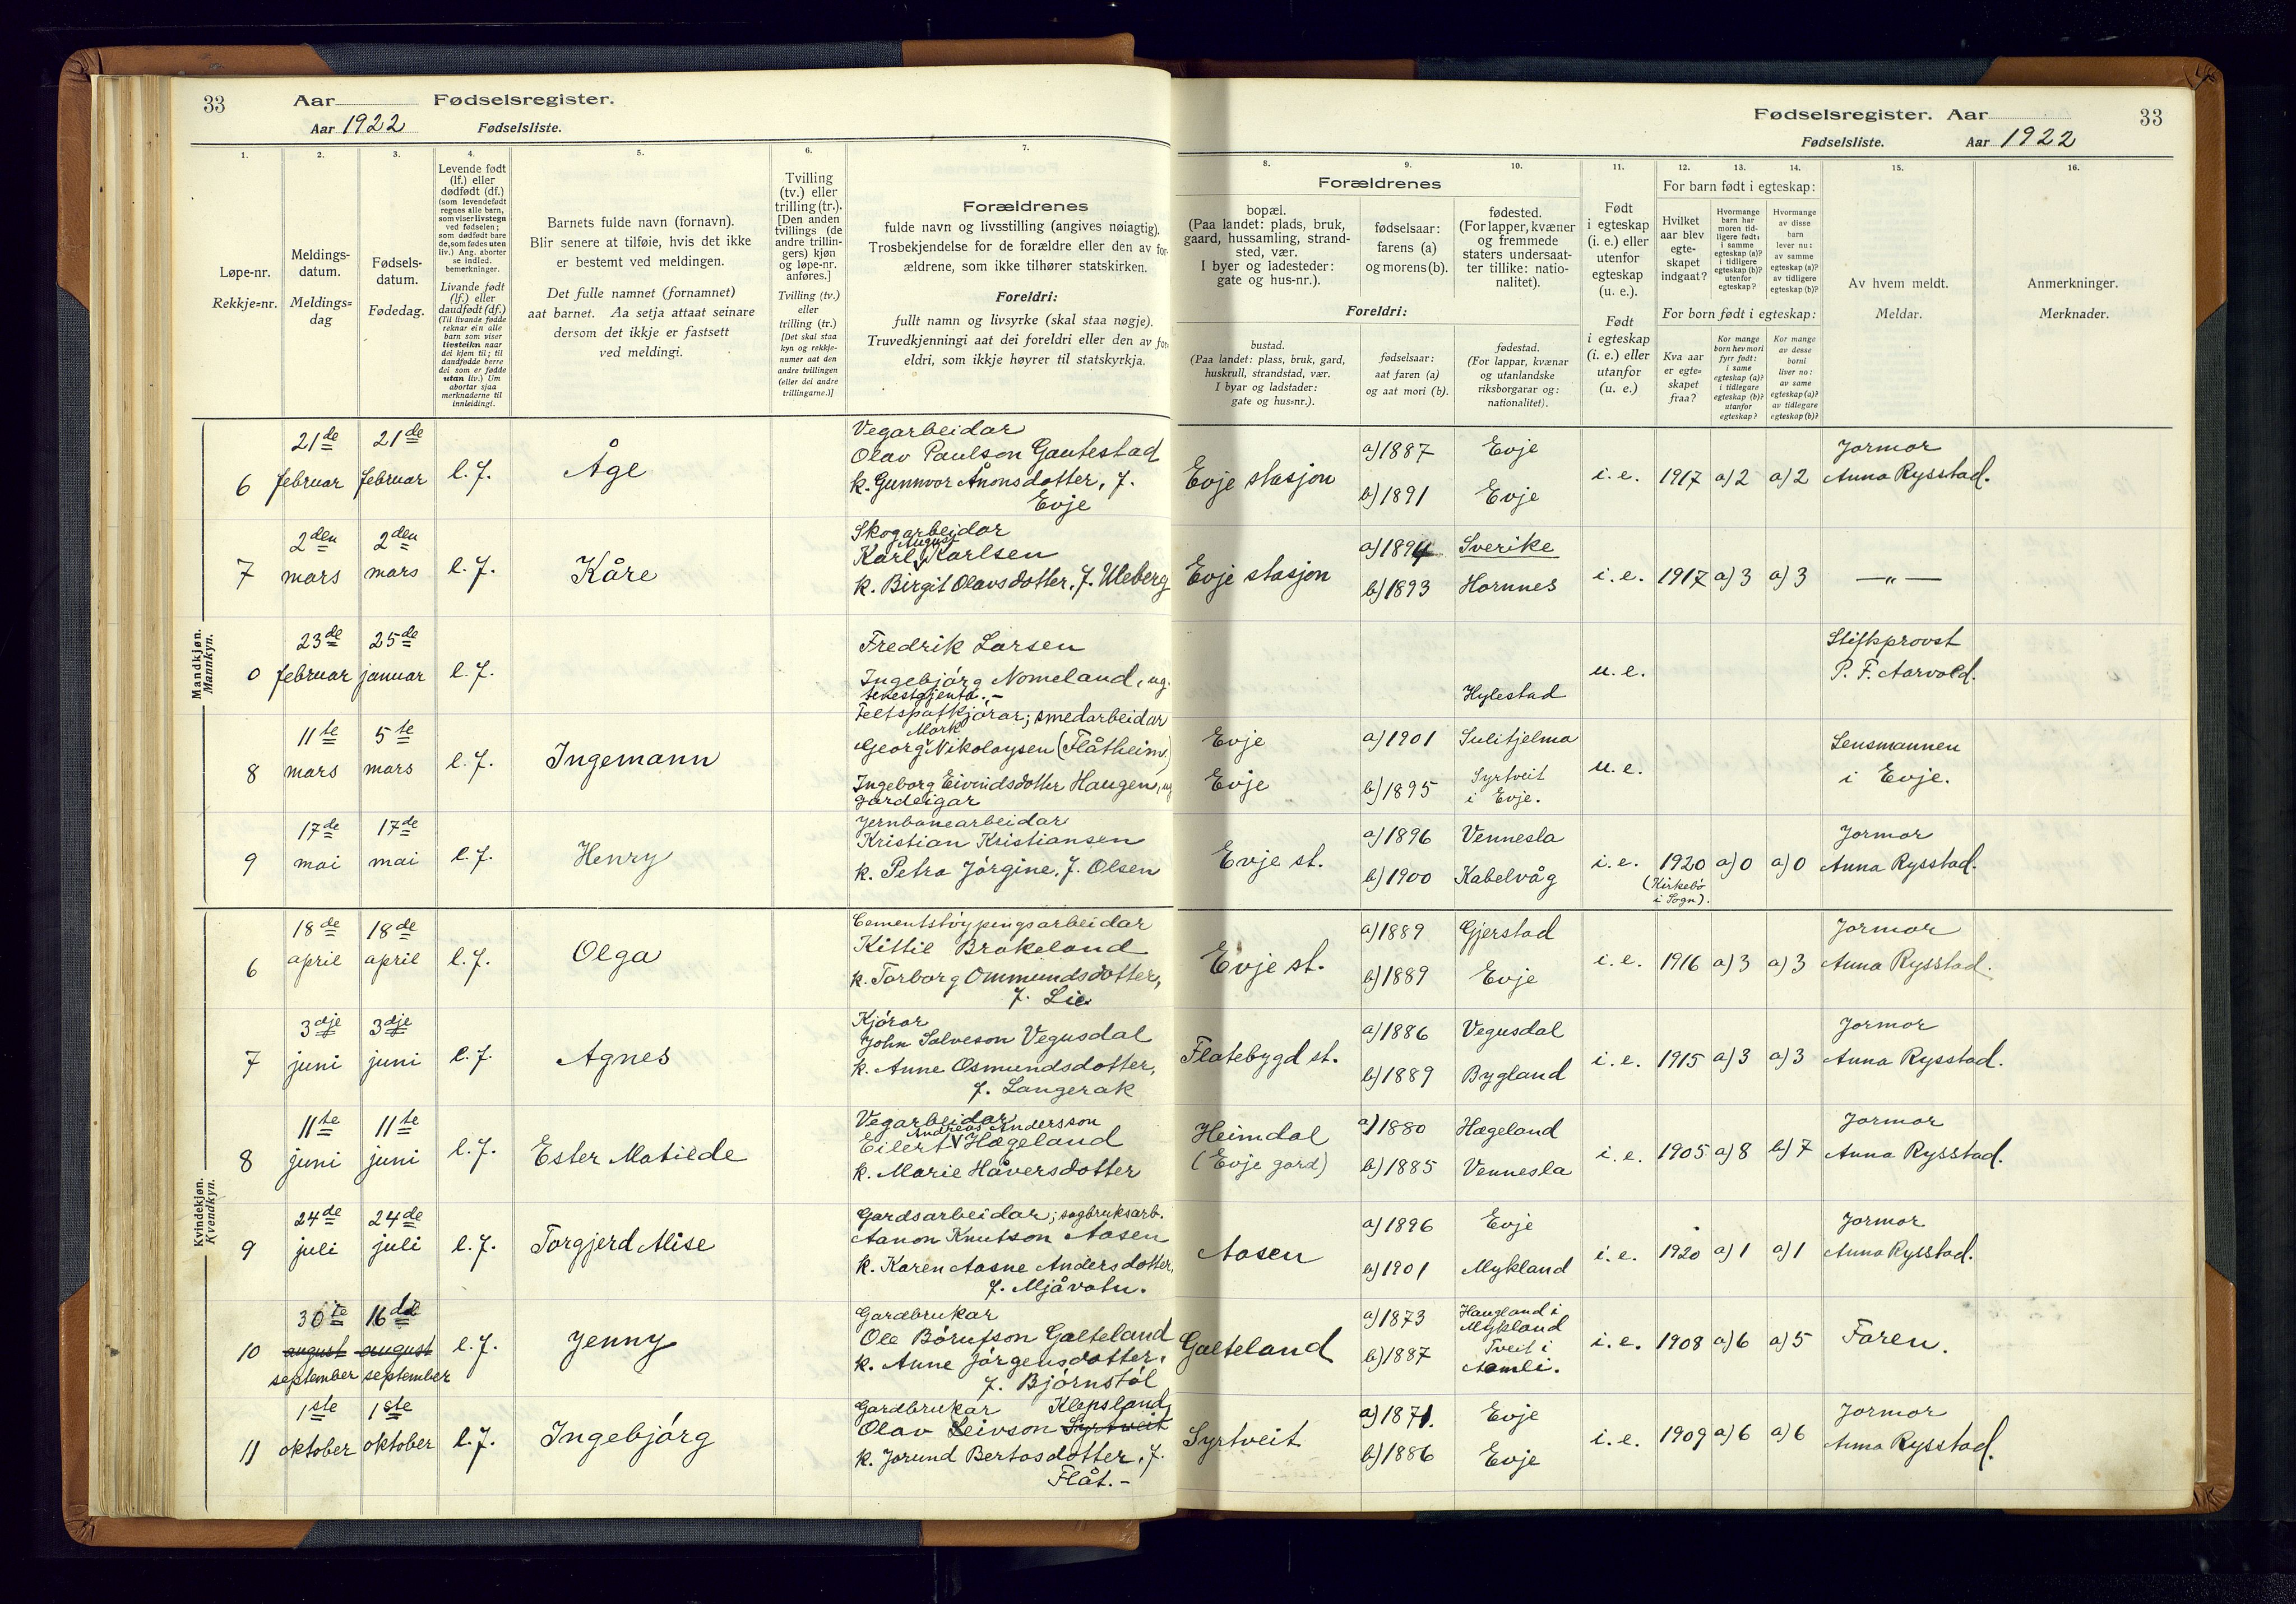 33 Aar Fødselsregister.
Aar 1922 Fødselsliste.
Fødselsregister. Aar 33
Fødselsliste. Aar 1922
1. 2. 3. 4. 5. 6. 7. 8. 9. 10. 11. 12. 13. 14. 15. 16.
Løpe-nr.
Rekkje-nr.
Meldings-
datum.
Meldings-
dag
Fødsels-
datum.
Fødedag.
Levende født
(lf.) eller
dødfødt (df.)
(som levendefødt
regnes alle barn,
som viser livstegn
ved fødselen;
som dødfødt bare
de, som fødes uten
liv.) Ang. aborter
se indled.
bemerkninger.
Livande født
(lf.) eller
daudfødt (df.)
(Til livande fødde
reknar ein alle
barn som viser
livsteikn naar
dei kjem til; til
daudfødde berre
dei som er fødde
utan liv.) Um
abortar sjaa
merknaderne til
innleidingi.
Barnets fulde navn (fornavn).
Blir senere at tilføie, hvis det ikke
er bestemt ved meldingen.
Det fulle namnet (fornamnet)
aat barnet. Aa setja attaat seinare
dersom det ikkje er fastsett
ved meldingi.
Tvilling
(tv.) eller
trilling (tr.).
[Den anden
tvillings (de
andre trillin-
gers) kjøn
og løpe-nr.
anføres.]
Tvilling (tv.)
eller
trilling (tr.)
[Det skal staa
kyn og rekkje-
numer aat den
andre tvillingen
(eller dei andre
trillingarne.)]
Forældrenes
fulde navn og livsstilling (angives nøiagtig).
Trosbekjendelse for de forældre eller den av for-
ældrene, som ikke tilhører statskirken.
Foreldri:
fullt namn og livsyrke (skal staa nøgje).
Truvedkjenningi aat dei foreldri eller den av for-
eldri, som ikkje høyrer til statskyrkja.
Forældrenes
bopæl.
(Paa landet: plads, bruk,
gaard, hussamling, strand-
sted, vær.
I byer og ladesteder:
gate og hus-nr.).
fødselsaar:
farens (a)
og morens (b).
fødested.
(For lapper, kvæner
og fremmede
staters undersaat-
ter tillike: natio-
nalitet).
Foreldri:
bustad.
(Paa landet: plass, bruk, gard,
huskrull, strandstad, vær.
I byar og ladstader:
gate og hus-nr.).
fødselsaar:
aat faren (a)
og aat mori (b).
fødestad.
(For lappar, kvænar
og utanlandske
riksborgarar og:
nationalitet).
Født
i egteskap
(i. e.) eller
utenfor
egteskap
(u. e.).
Født
i egteskap
(i. e.) eller
utanfor
(u. e.)
For barn født i egteskap:
Hvilket
aar blev
egte-
skapet
indgaat?
Hvormange
barn har
moren tid-
ligere født:
i samme
egteskap (a)?
i tidligere
egteskap (b)?
utenfor
egteskap?
Hvormange
av disse
barn
lever nu:
av samme
egteskap (a)?
av tidligere
egteskap (b)?
For born født i egteskap:
Kva aar
er egte-
skapet
fraa?
Kor mange
born hev mori
fyrr født:
i same
egteskap (a)?
i tidlegare
egteskap (b)?
utanfor
egteskap?
Kor mange
av desse
borni
liver no:
av same
egteskap (a)?
av tidlegare
egteskap (b)?
Av hvem meldt.
Meldar.
Anmerkninger.
Merknader.
Mandkjøn.
Mannkyn.
6 21de februar 21de februar l.f. Åge
Vegarbeidar
Olav Paulson Gautestad
k. Gunnvor Ånonsdotter, f.
Evje
Evje stasjon a) 1887 Evje b) 1891 Evje i. e. 1917 a) 2 a) 2 Jormor Anna Rysstad.
7 2den mars 2den mars l.f. Kåre
Skogarbeidar
Karl August Karlsen
k. Birgit Olavsdotter, f. Uleberg
Evje stasjon a) 1894 Sverike b) 1893 Hornnes i. e. 1917 a) 3 a) 3 — " —
0 23de februar 25de januar l.f.
Fredrik Larsen
Ingebjörg Nomeland, ug.
tenestgjenta. -
Hylestad u. e. Stiftsprovst P. F. Aarvold.
8 11te mars 5te mars l.f. Ingemann
Feltspatkjörar; smedarbeidar
Georg Mork Nikolaysen (Flåtheim)
Ingeborg Eivindsdotter Haugen, ug
gardeigar
Evje a) 1901 Sulitjelma Evje b) 1895 Syrtveit i Evje. u. e. Lensmannen i Evje.
9 17de mai 17de mai l.f. Henry
Jernbanearbeidar
Kristian Kristiansen
k. Petra Jörgine, f. Olsen
Evje st. a) 1896 Vennesla b) 1900 Kabelvåg i. e. 1920 (Kirkebö i Sogn). a) 0 a) 0 Jormor Anna Rysstad.
Kvindekjøn.
Kvendkyn.
6 18de april 18de april l.f. Olga
Cementstöypingsarbeidar
Kittil Brokeland
k. Torborg Ommundsdotter,
f. Lie
Evje st. a) 1889 Gjerstad b) 1889 Evje i. e. 1916 a) 3 a) 3 Jormor Anna Rysstad.
7 3dje juni 3dje juni l.f. Agnes
Kjörar
John Salveson Vegusdal
k. Anne Osmundsdotter,
f. Langerak
Flatebygd st. a) 1886 Vegusdal b) 1889 Bygland i. e. 1915 a) 3 a) 3 Jormor Anna Rysstad.
8 11te juni 11te juni l.f. Ester Matilde
Vegarbeidar
Eilert Andreas Andersson Hægeland
k. Marie Håversdotter
Heimdal (Evje gard) a) 1880 Hægeland b) 1885 Vennesla i. e. 1905 a) 8 b) 7 Jormor Anna Rysstad.
9 24de juli 24de juli l.f. Torgjerd Alise
Gardsarbeidar; sagbruksarb.
Aanon Knutson Aasen
k. Karen Aasne Andersdotter,
f. Mjåvatn.
Aasen a) 1896 Evje b) 1901 Mykland i. e. 1920 a) 1 a) 1 Jormor Anna Rysstad.
10 30te august september 16de august september l.f. Jenny
Gardbrukar
Ole Börufson Galteland
k. Anne Jörgensdotter,
f. Björnstöl
Galteland a) 1873 Haugland i Mykland b) 1887 Tveit i Aamli. i. e. 1908 a) 6 a) 5 Faren.
11 1ste oktober 1ste oktober l.f. Ingebjörg
Gardbrukar Klepsland,
Olav Leivson Syrtveit
k. Jorund Bertosdotter, f.
Flåt. -
Syrtveit a) 1871. Evje b) 1886 Evje i. e. 1909 a) 6 a) 6 Jormor Anna Rysstad.